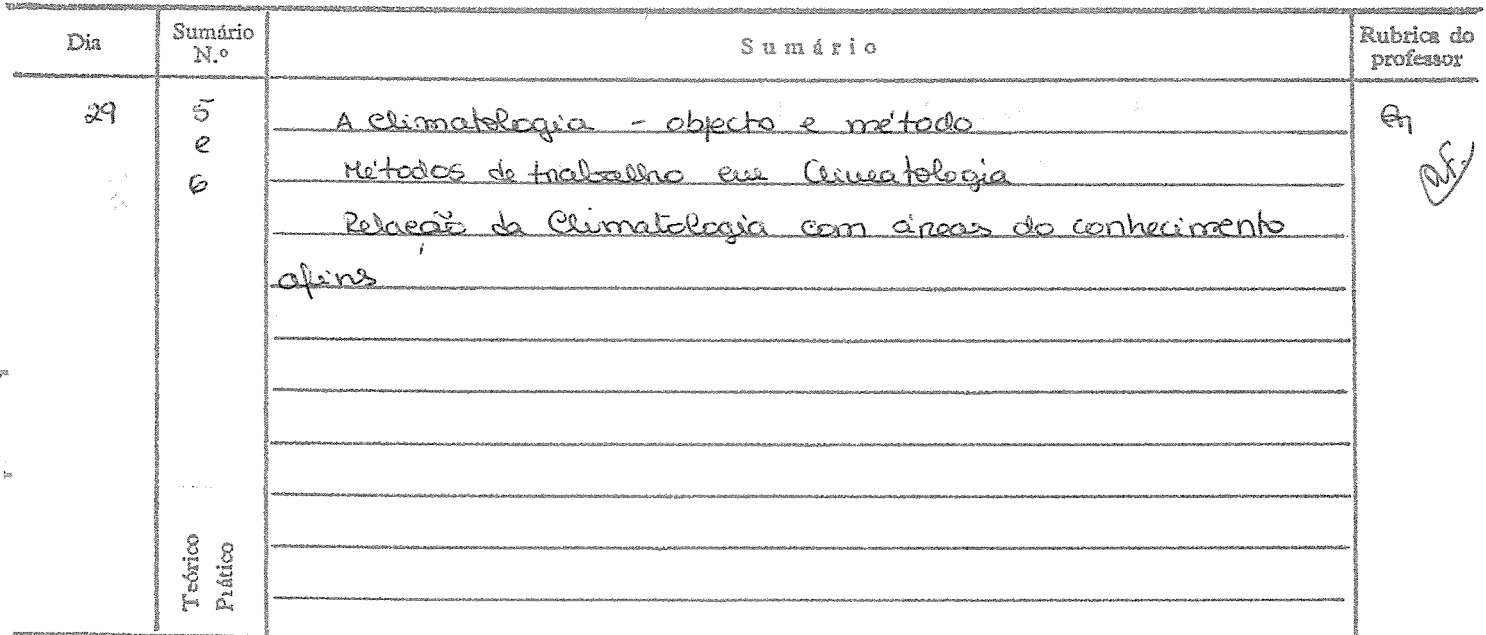 Dia
Sumário N.º
Sumário
Rubrica do professor
29
5 e 6
A Climatologia - objecto e método
Métodos de trabalho em Climatologia
Relação da Climatologia com áreas do conhecimento
afins
Teórico
Prático